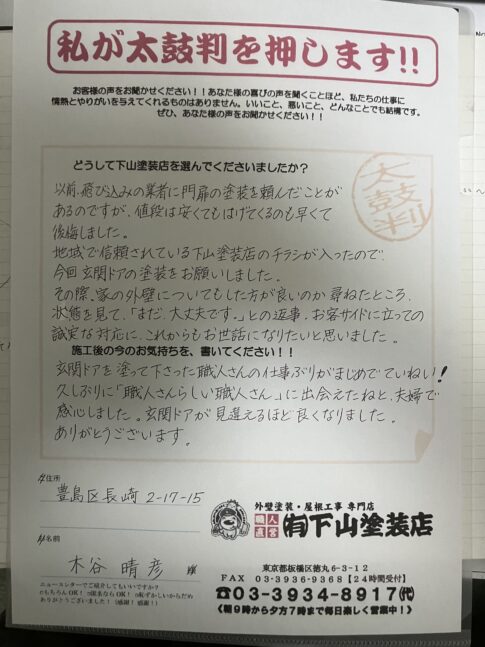 私が太鼓判を押します!!
お客様の声をお聞かせください!!あなた様の喜びの声を聞くことほど、私たちの仕事に
情熱とやりがいを与えてくれるものはありません。いいこと、悪いこと、どんなことでも結構です。
ぜひ、あなた様の声をお聞かせください!!
どうして下山塗装店を選んでくださいましたか?
太鼓判
以前、飛び込みの業者に門扉の塗装を頼んだことが
あるのですが、値段は安くてもはげてくるのも早くて
後悔しました。
地域で信頼されている下山塗装店のチラシが入ったので、
今回玄関ドアの塗装をお願いしました。
その際、家の外壁についてもした方が良いのか尋ねたところ、
状態を見て、「まだ、大丈夫です。」との返事。お客サイドに立っての
誠実な対応に、これからもお世話になりたいと思いました。
施工後の今のお気持ちを、書いてください!!
玄関ドアを塗って下さった職人さんの仕事ぶりがまじめでていねい!
久しぶりに「職人さんらしい職人さん」に出会えたねと、夫婦で
感心しました。玄関ドアが見違えるほど良くなりました。
ありがとうございます。
ご住所
豊島区長崎2-17-15
お名前
木谷 晴彦 様
ニュースレターでご紹介してもいいですか?
□もちろんOK! □匿名ならOK! □恥ずかしいからだめ
ありがとうございました!(感謝!感謝!)
外壁塗装・屋根工事 専門店
職人直営
㈲下山塗装店
東京都板橋区徳丸6-3-12
FAX 03-3936-9368【24時間受付】
☎03-3934-8917㈹
《朝9時から夕方7時まで毎日楽しく営業中!》